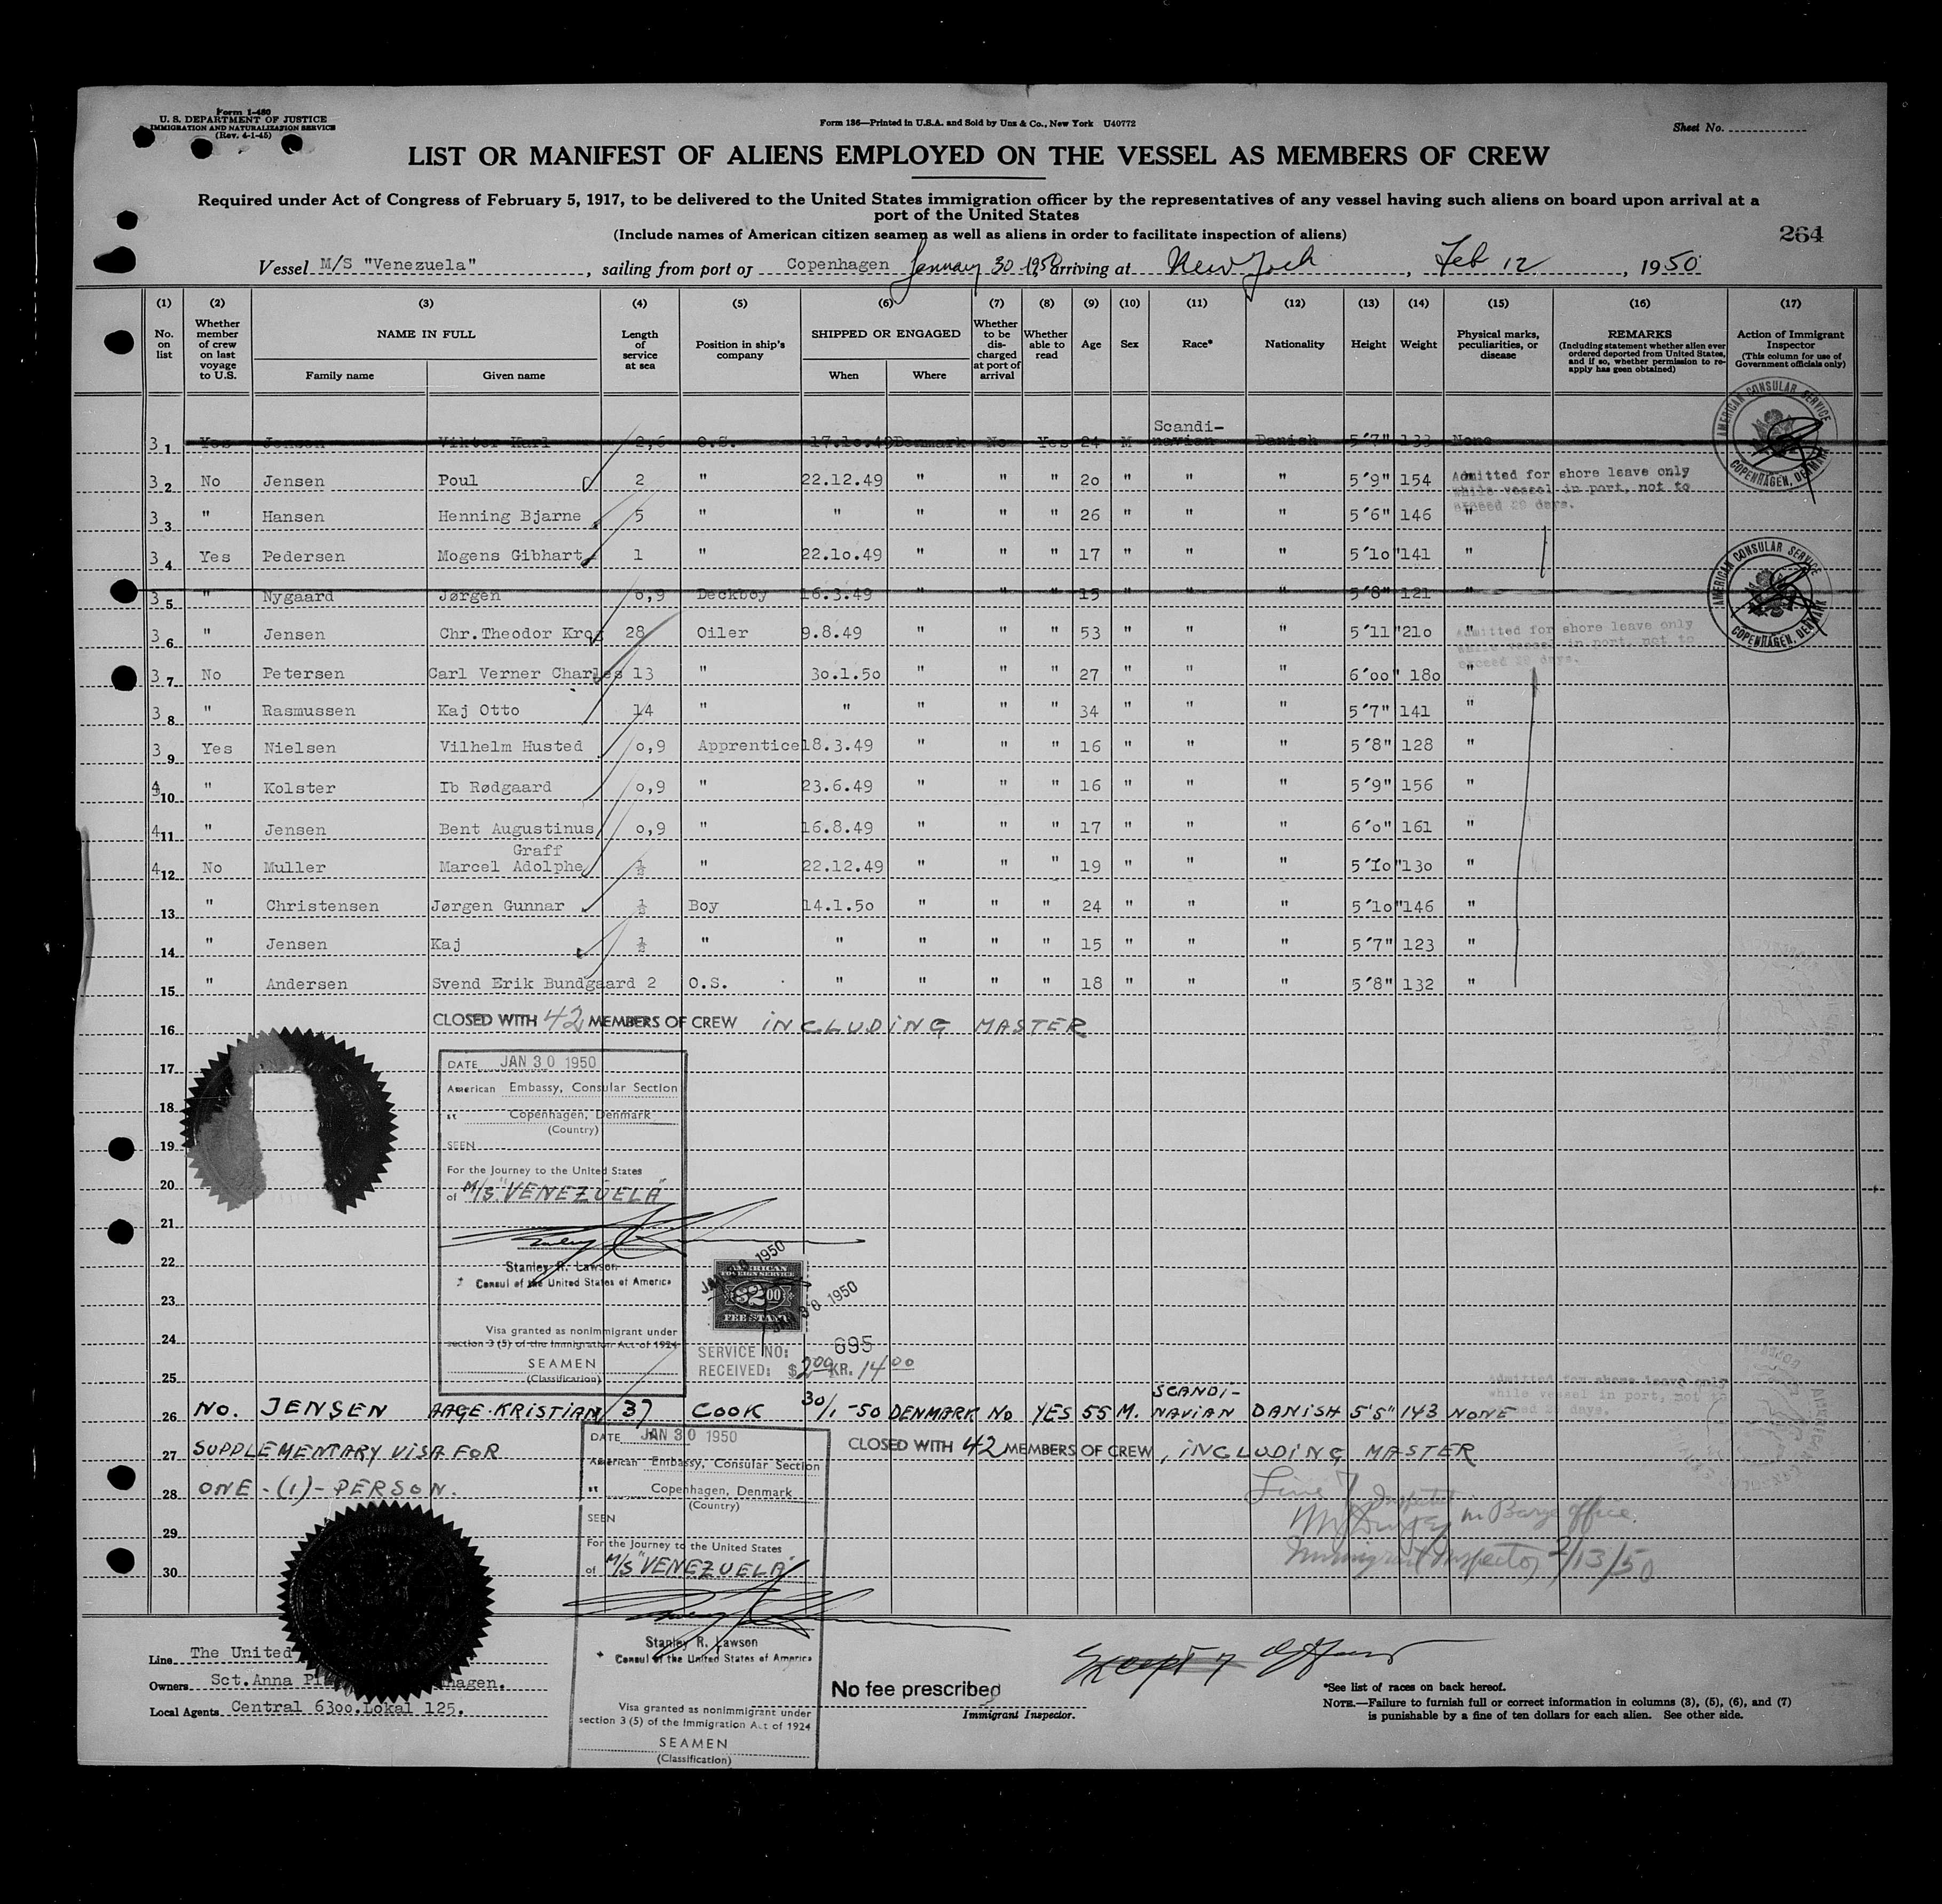 Form I-480
U. S. DEPARTMENT OF JUSTICE
IMMIGRATION AND NATURALIZATION SERVICE
(Rev. 4-1-45)
Form 136—Printed in U.S.A. and Sold by Unz & Co., New York U40772
Sheet No.
LIST OR MANIFEST OF ALIENS EMPLOYED ON THE VESSEL AS MEMBERS OF CREW
Required under Act of Congress of February 5, 1917, to be delivered to the United States immigration officer by the representatives of any vessel having such aliens on board upon arrival at a
port of the United States
(Include names of American citizen seamen as well as aliens in order to facilitate inspection of aliens)
264
Vessel M/S "Venezuela", sailing from port of Copenhagen January 30 1950, arriving at New York, Feb 12, 1950
(1) (2) (3) (4) (5) (6) (7) (8) (9) (10) (11) (12) (13) (14) (15) (16) (17)
No. on list
Whether member of crew on last voyage to U.S.
NAME IN FULL
Family name
Given name
Length of service at sea
Position in ship's company
SHIPPED OR ENGAGED
When
Where
Whether to be discharged at port of arrival
Whether able to read
Age
Sex
Race*
Nationality
Height
Weight
Physical marks, peculiarities, or disease
REMARKS
(Including statement whether alien ever ordered deported from United States, and if so, whether permission to re-apply has geen obtained)
Action of Immigrant Inspector
(This column for use of Government officials only)
AMERICAN CONSULAR SERVICE COPENHAGEN, DENMARK
31 Yes Jensen Viktor Karl 2,6 O.S. 17.10.49 Denmark No Yes 24 M Scandi-navian Danish 5'7" 133 None
32 No Jensen Poul 2 " 22.12.49 " " " 20 " " " 5'9" 154 "
Admitted for shore leave only
while vessel in port, not to
exceed 29 days.
33 " Hansen Henning Bjarne 5 " " " " " 26 " " " 5'6" 146 "
34 Yes Pedersen Mogens Gibhart 1 " 22.10.49 " " " 17 " " " 5'10" 141 "
AMERICAN CONSULAR SERVICE COPENHAGEN, DENMARK
35 " Nygaard Jørgen 0,9 Deckboy 16.3.49 " " " 15 " " " 5'8" 121 "
36 " Jensen Chr.Theodor Krog 28 Oiler 9.8.49 " " " 53 " " " 5'11" 210 "
Admitted for shore leave only
while vessel in port, not to
exceed 29 days.
37 No Petersen Carl Verner Charles 13 " 30.1.50 " " " 27 " " " 6'00" 180 "
38 " Rasmussen Kaj Otto 14 " " " " " 34 " " " 5'7" 141 "
39 Yes Nielsen Vilhelm Husted 0,9 Apprentice 18.3.49 " " " 16 " " " 5'8" 128 "
410 " Kolster Ib Rødgaard 0,9 " 23.6.49 " " " 16 " " " 5'9" 156 "
411 " Jensen Bent Augustinus 0,9 " 16.8.49 " " " 17 " " " 6'0" 161 "
Graff
412 No Muller Marcel Adolphe ½ " 22.12.49 " " " 19 " " " 5'10" 130 "
13 " Christensen Jørgen Gunnar ½ Boy 14.1.50 " " " 24 " " " 5'10" 146 "
14 " Jensen Kaj ½ " " " " " 15 " " " 5'7" 123 "
15 " Andersen Svend Erik Bundgaard 2 O.S. " " " " 18 " " " 5'8" 132 "
16 CLOSED WITH 42 MEMBERS OF CREW INCLUDING MASTER
17
18
19
20
21
22
23
24
25
DATE JAN 30 1950
American Embassy, Consular Section
at Copenhagen, Denmark
(Country)
SEEN
For the Journey to the United States
of M/S "VENEZUELA"
Stanley R. Lawson
Consul of the United States of America
Visa granted as nonimmigrant under
section 3 (5) of the Immigration Act of 1924
SEAMEN
(Classification)
JAN 30 1950
AMERICAN
FOREIGN SERVICE
$2.00
FEE STAMP
JAN 30 1950
SERVICE NO: 695
RECEIVED: $2.00 KR. 14.00
Admitted for shore leave only
while vessel in port, not to
exceed 29 days.
26 NO. JENSEN AAGE·KRISTIAN 37 COOK 30/1-50 DENMARK NO YES 55 M. SCANDI-NAVIAN DANISH 5'5" 143 NONE
27 SUPPLEMENTARY VISA FOR
28 ONE-(1)-PERSON.
29
30
CLOSED WITH 42 MEMBERS OF CREW, INCLUDING MASTER
Line 7 Inspected
in Barge Office.
Immigrant Inspector 2/13/50
DATE JAN 30 1950
American Embassy, Consular Section
at Copenhagen, Denmark
(Country)
SEEN
For the Journey to the United States
of M/S "VENEZUELA"
Stanley R. Lawson
Consul of the United States of America
Visa granted as nonimmigrant under
section 3 (5) of the Immigration Act of 1924
SEAMEN
(Classification)
Line The United
Owners Sct.Anna Pl hagen.
Local Agents Central 6300.Lokal 125.
No fee prescribed
Except 7
Immigrant Inspector.
*See list of races on back hereof.
NOTE.—Failure to furnish full or correct information in columns (3), (5), (6), and (7)
is punishable by a fine of ten dollars for each alien. See other side.